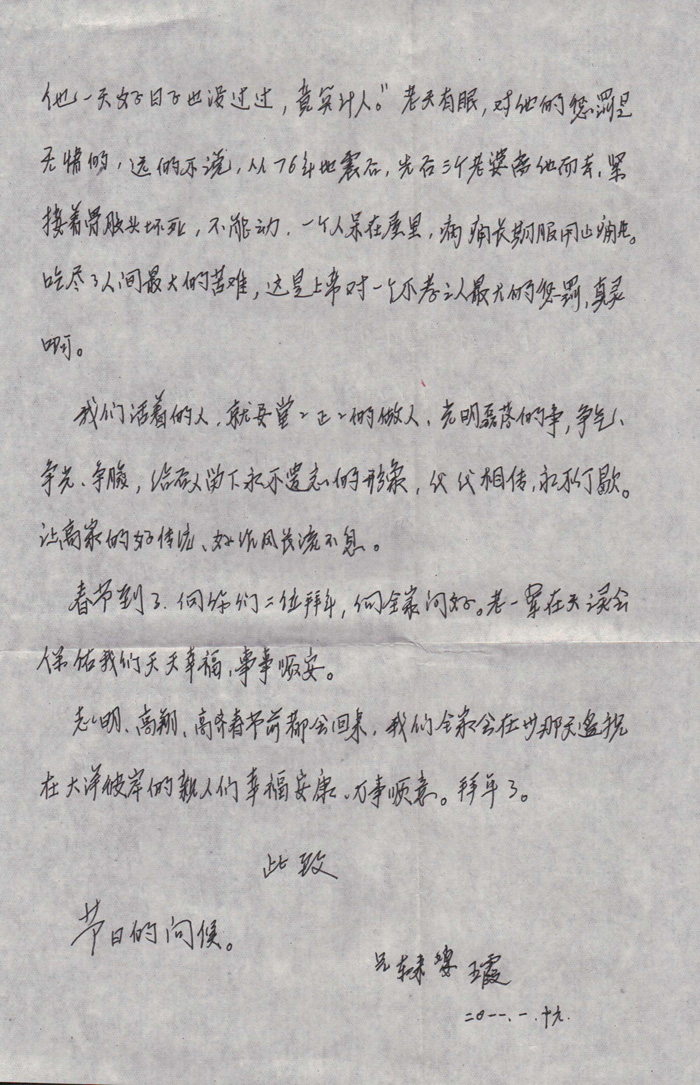 他一天好日子也没过过，竟算计人。”老天有眼，对他的惩罚是
无情的，远的不说，从76年地震后，先后3个老婆离他而去，紧
接着骨股头坏死，不能动，一个人呆在屋里，病痛长期服用止痛片。
吃尽了人间最大的苦难，这是上帝对一个不孝之人最大的惩罚，真灵
啊。
我们活着的人，就要堂〻正〻的做人、光明磊落的事，争气、
争光、争脸，给后人留下永不遗忘的形象，代代相传，永不停歇。
让高家的好传统、好作风长流不息。
春节到了，向你们二位拜年，向全家问好。老一辈在天灵会
保佑我们天天幸福，事事顺安。
志明、高翔、高齐春节前都会回来，我们全家会在廿那天遥祝
在大洋彼岸的亲人们幸福安康、万事顺意。拜年了。
此致
节日的问候。
兄 王霞
二〇一一.一.十九.